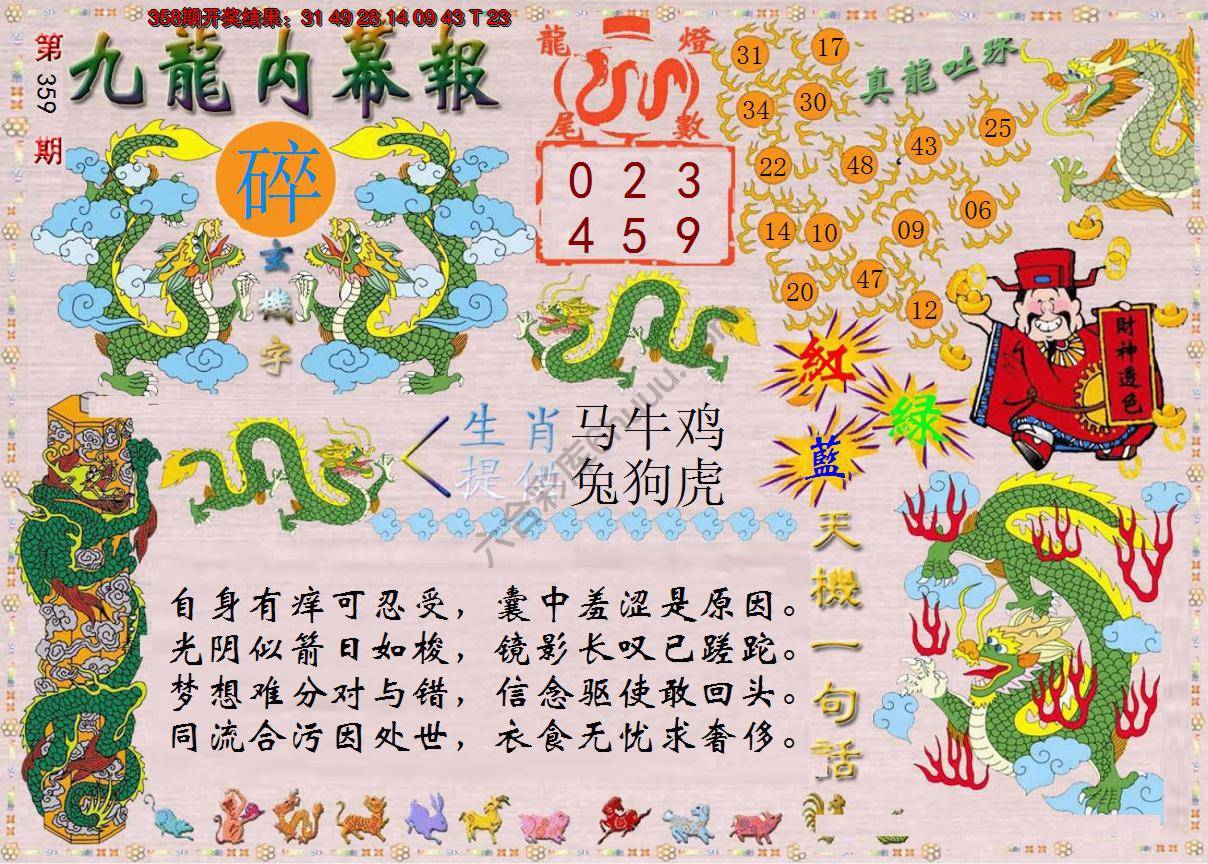 358期开奖结果：31 49 28 14 09 43 T 23
第359期
九龍内幕報
碎
玄機字
龍燈
尾數
0 2 3
4 5 9
真龍吐珠
31 17
34 30
43 25
22 48
14 10 09 06
20 47 12
紅
綠
藍
財神透色
生肖 马牛鸡
提供 兔狗虎
天機一句話
自身有痒可忍受，囊中羞涩是原因。
光阴似箭日如梭，镜影长叹已蹉跎。
梦想难分对与错，信念驱使敢回头。
同流合污因处世，衣食无忧求奢侈。